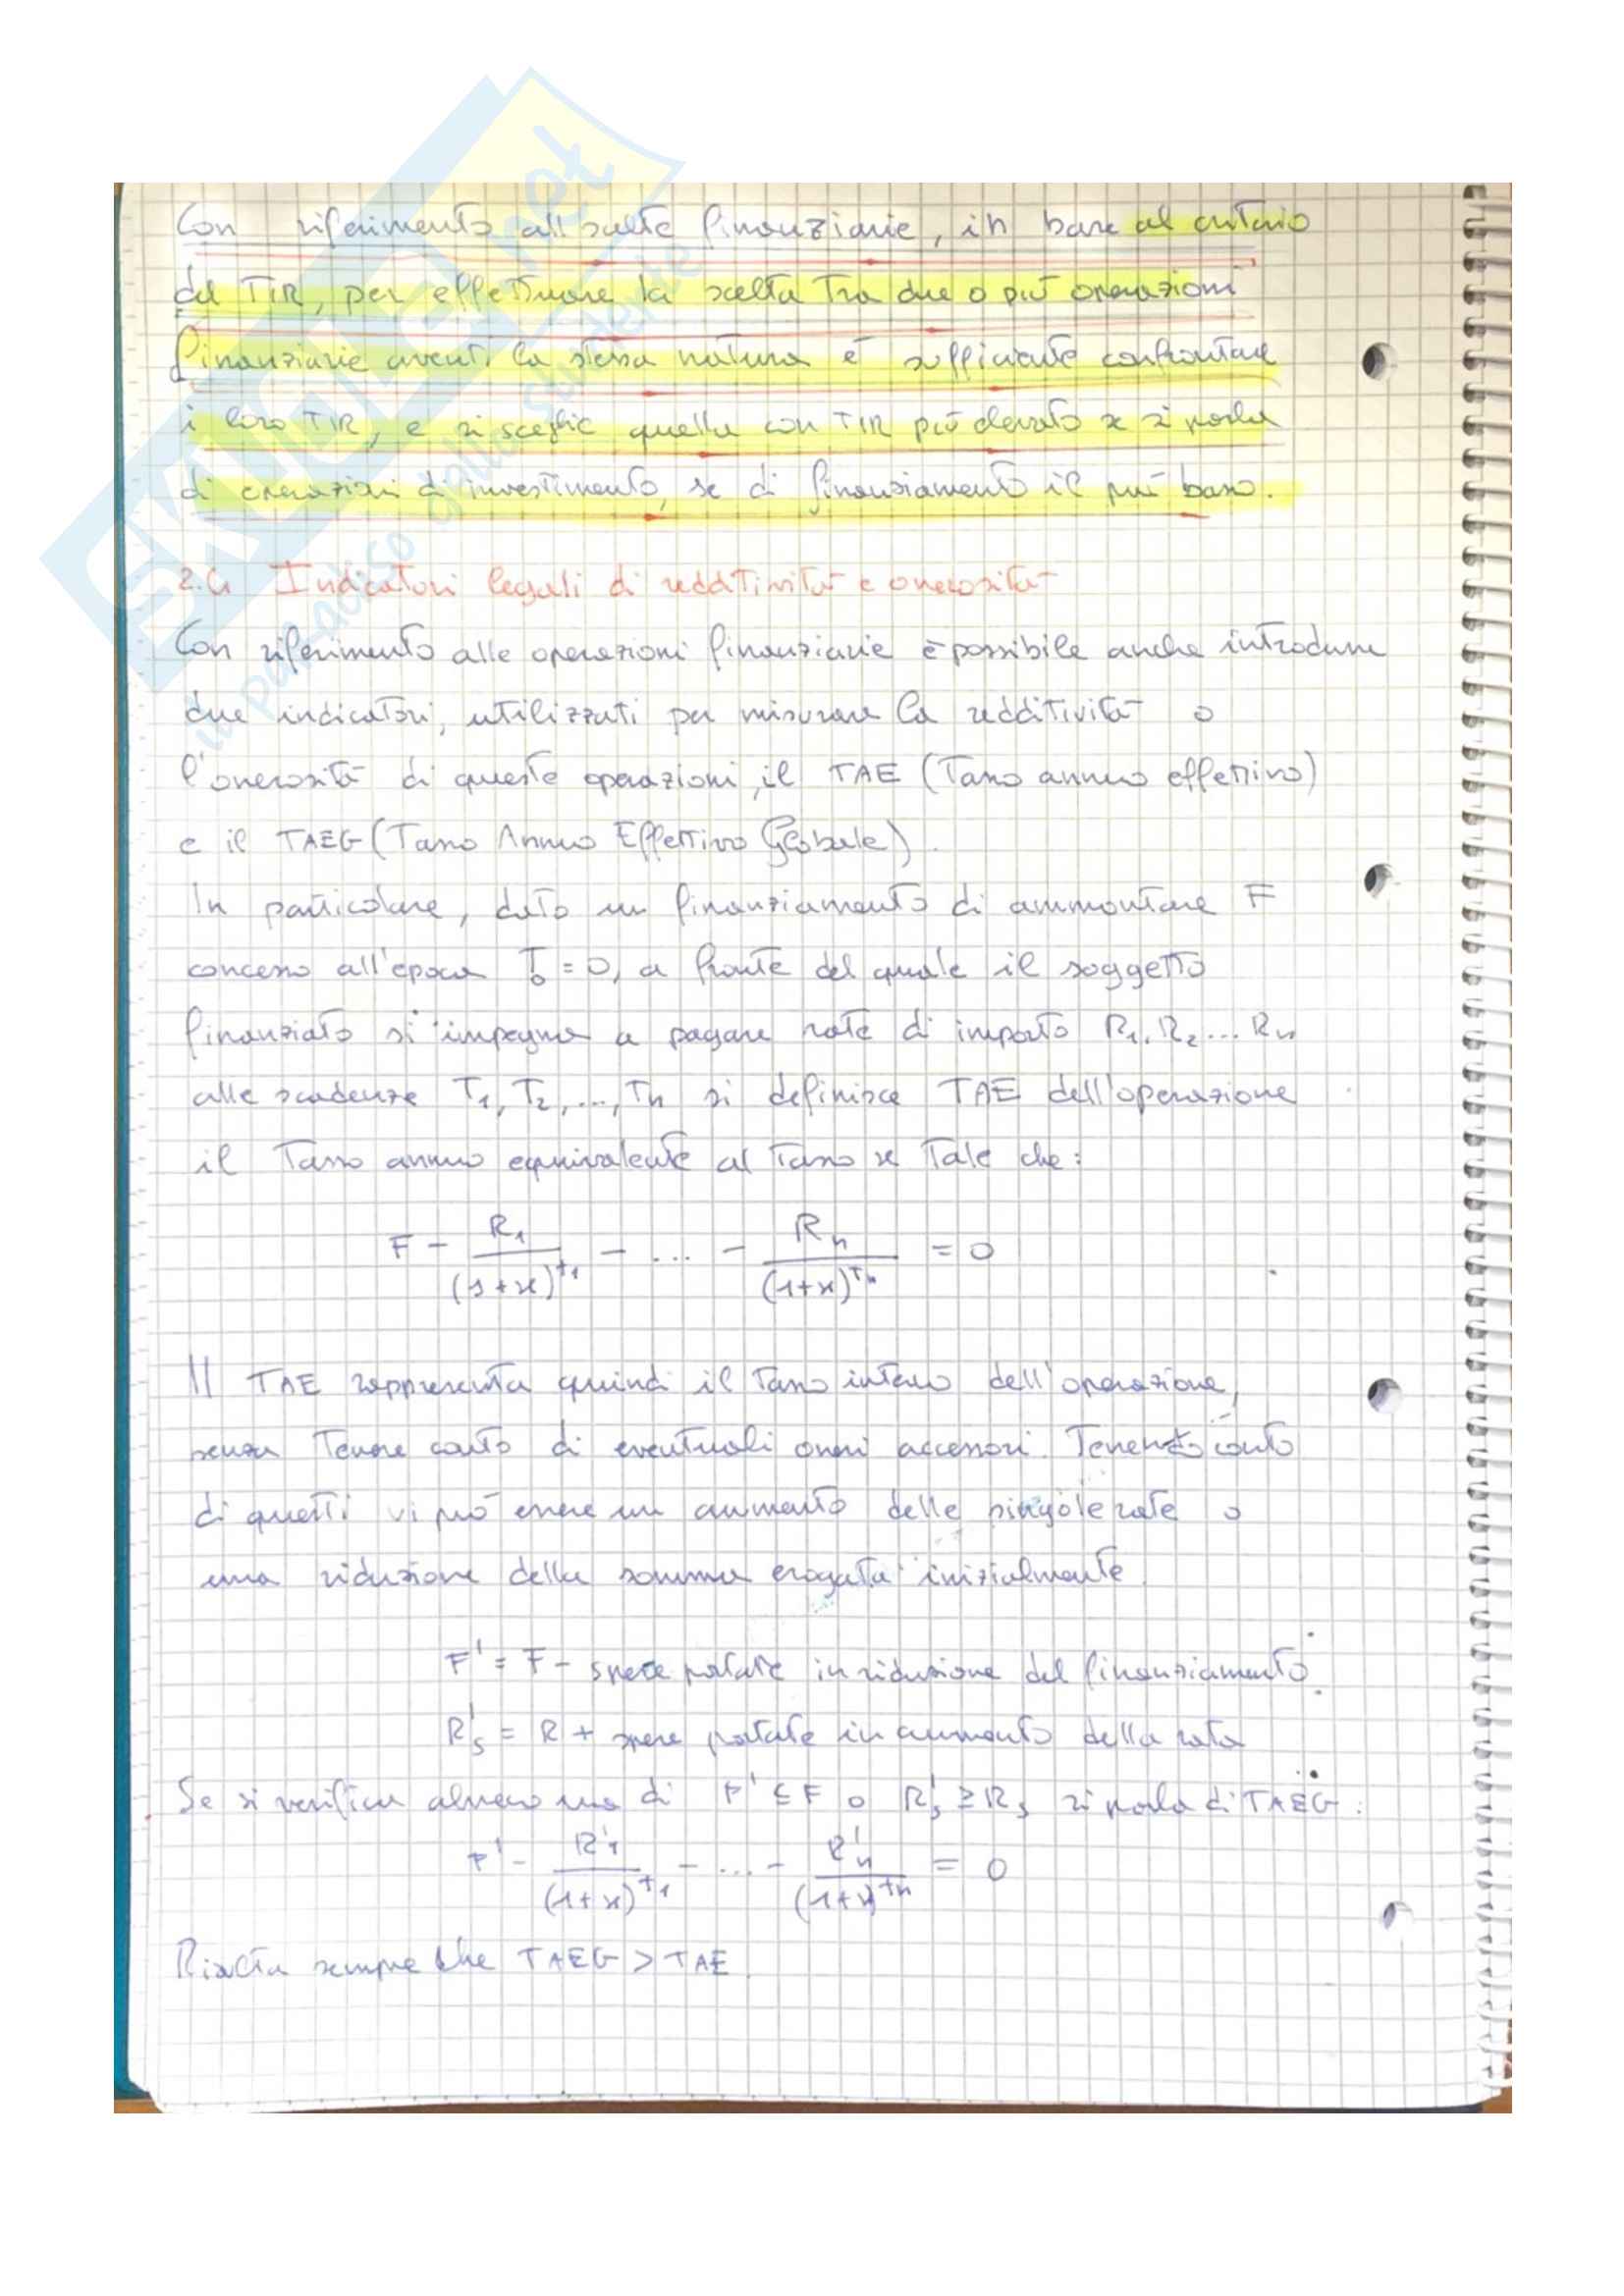 Con riferimento all scelte finanziarie, in base al criterio
del TIR, per effettuare la scelta tra due o più operazioni
finanziarie aventi la stessa natura è sufficiente confrontare
i loro TIR, e si sceglie quella con TIR più elevato se si parla
di operazioni di investimento, se di finanziamento il più basso.
2.4 Indicatori legali di redditività e onerosità
Con riferimento alle operazioni finanziarie è possibile anche introdurre
due indicatori, utilizzati per misurare la redditività o
l'onerosità di queste operazioni, il TAE (Tasso annuo effettivo)
e il TAEG (Tasso Annuo Effettivo Globale).
In particolare, dato un finanziamento di ammontare F
concesso all'epoca T₀ = 0, a fronte del quale il soggetto
finanziato si impegna a pagare rate di importo R₁, R₂ ... Rₙ
alle scadenze T₁, T₂, ..., Tₙ si definisce TAE dell'operazione
il tasso annuo equivalente al tasso x tale che:
F - R₁/(1+x)^t₁ - ... - Rₙ/(1+x)^Tₙ = 0
Il TAE rappresenta quindi il tasso interno dell'operazione,
senza tenere conto di eventuali oneri accessori. Tenendo conto
di questi vi può essere un aumento delle singole rate o
una riduzione della somma erogata inizialmente.
F' = F - spese portate in riduzione del finanziamento
R's = R + spese portate in aumento della rata
Se si verifica almeno uno di F' ≤ F o R's ≥ Rs si parla di TAEG:
F' - R'₁/(1+x)^t₁ - ... - R'ₙ/(1+x)^tₙ = 0
Risulta sempre che TAEG > TAE
SKUOLA.net
il paradiso dello studente